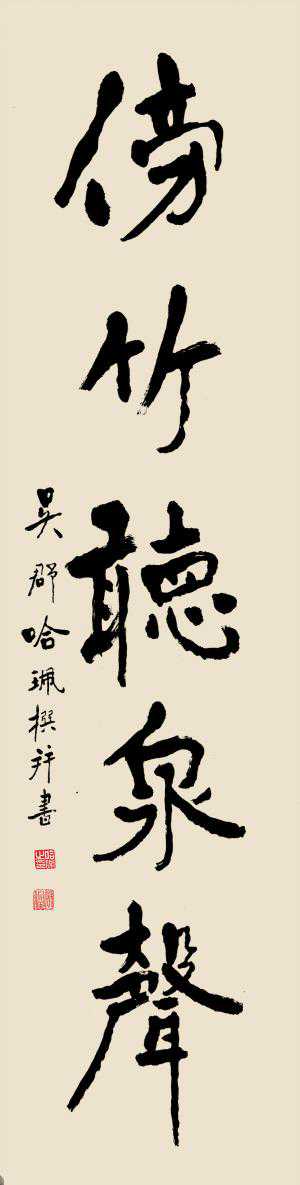 傍竹聽泉聲
吴郡哈珮撰并書